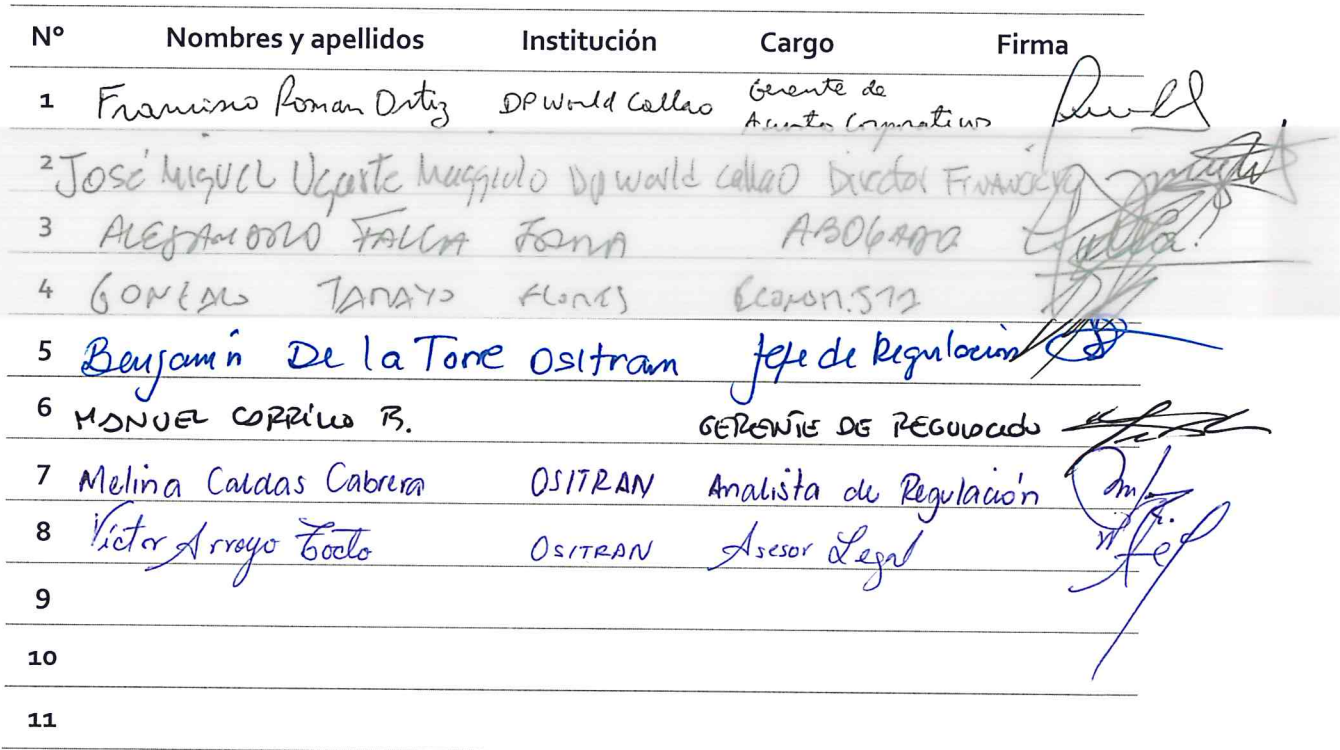 Nº Nombres y apellidos Institución Cargo Firma
1 Francisco Roman Ortiz DP World Callao Gerente de
Asuntos Corporativos
2 José Miguel Ugarte Maggiolo DP World Callao Director Financiero
3 ALEJANDRO FALLA ABOGADO
4 GONZALO TAMAYO FLORES
5 Benjamín De la Torre Ositran Jefe de Regulación
6 MANUEL CARRILLO B. GERENTE DE
7 Melina Caldas Cabrera OSITRAN Analista de Regulación
8 Víctor Arroyo Tocto OSITRAN Asesor Legal
9
10
11